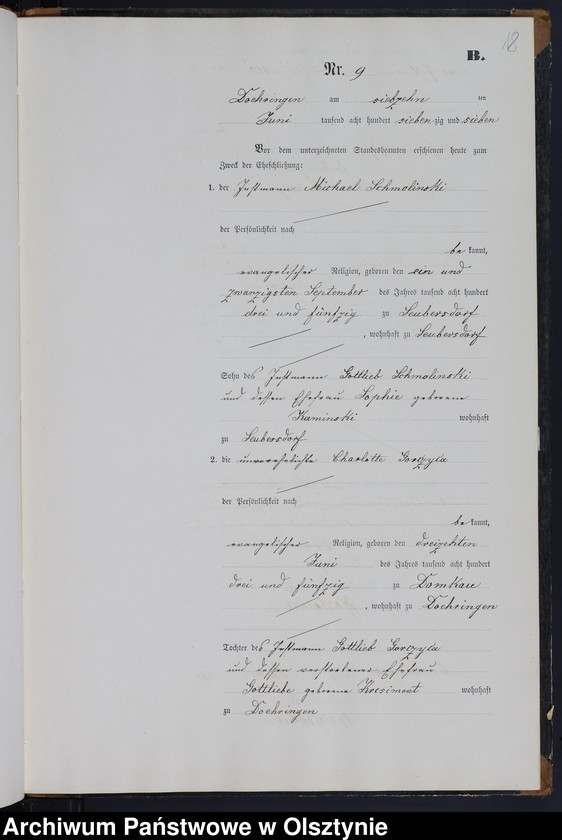 18
B.
Nr. 9
Doehringen am siebzehn ten
Juni tausend acht hundert siebenzig und sieben
Vor dem unterzeichneten Standesbeamten erschienen heute zum
Zweck der Eheschließung:
1. der Instmann Michael Schmolinski
der Persönlichkeit nach
be kannt,
evangelischer Religion, geboren den ein und
zwanzigsten September des Jahres tausend acht hundert
drei und fünfzig zu Leubersdorf
, wohnhaft zu Leubersdorf
Sohn des Instmann Gottlieb Schmolinski
und dessen Ehefrau Sophie geborene
Kaminski wohnhaft
zu Leubersdorf
2. die unverehelichte Charlotte Gorczyla
der Persönlichkeit nach
be kannt,
evangelischer Religion, geboren den dreizehten
Juni des Jahres tausend acht hundert
drei und fünfzig zu Domkau
, wohnhaft zu Doehringen
Tochter des Instmann Gottlieb Gorczyla
und dessen verstorbener Ehefrau
Gottliebe geborene Kresiment wohnhaft
zu Doehringen
Archiwum Państwowe w Olsztynie